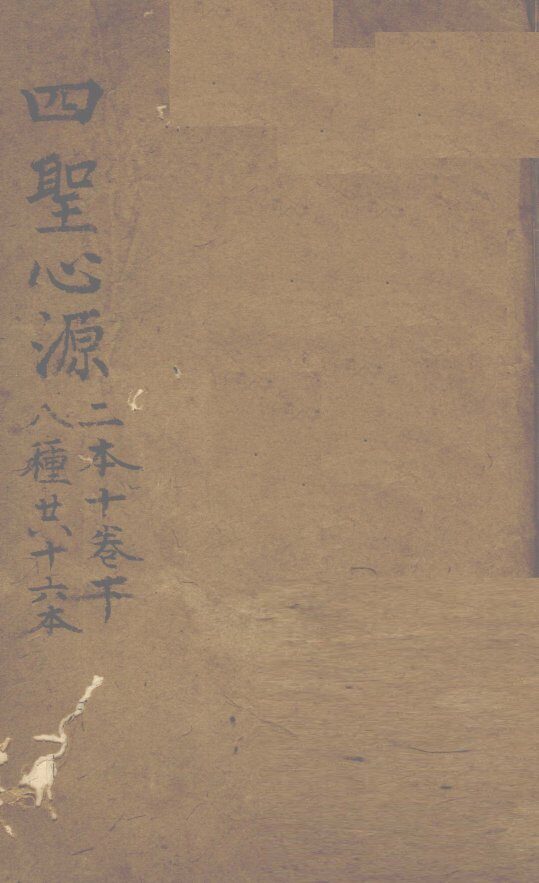 四聖心源
二本十卷下
八種共十六本